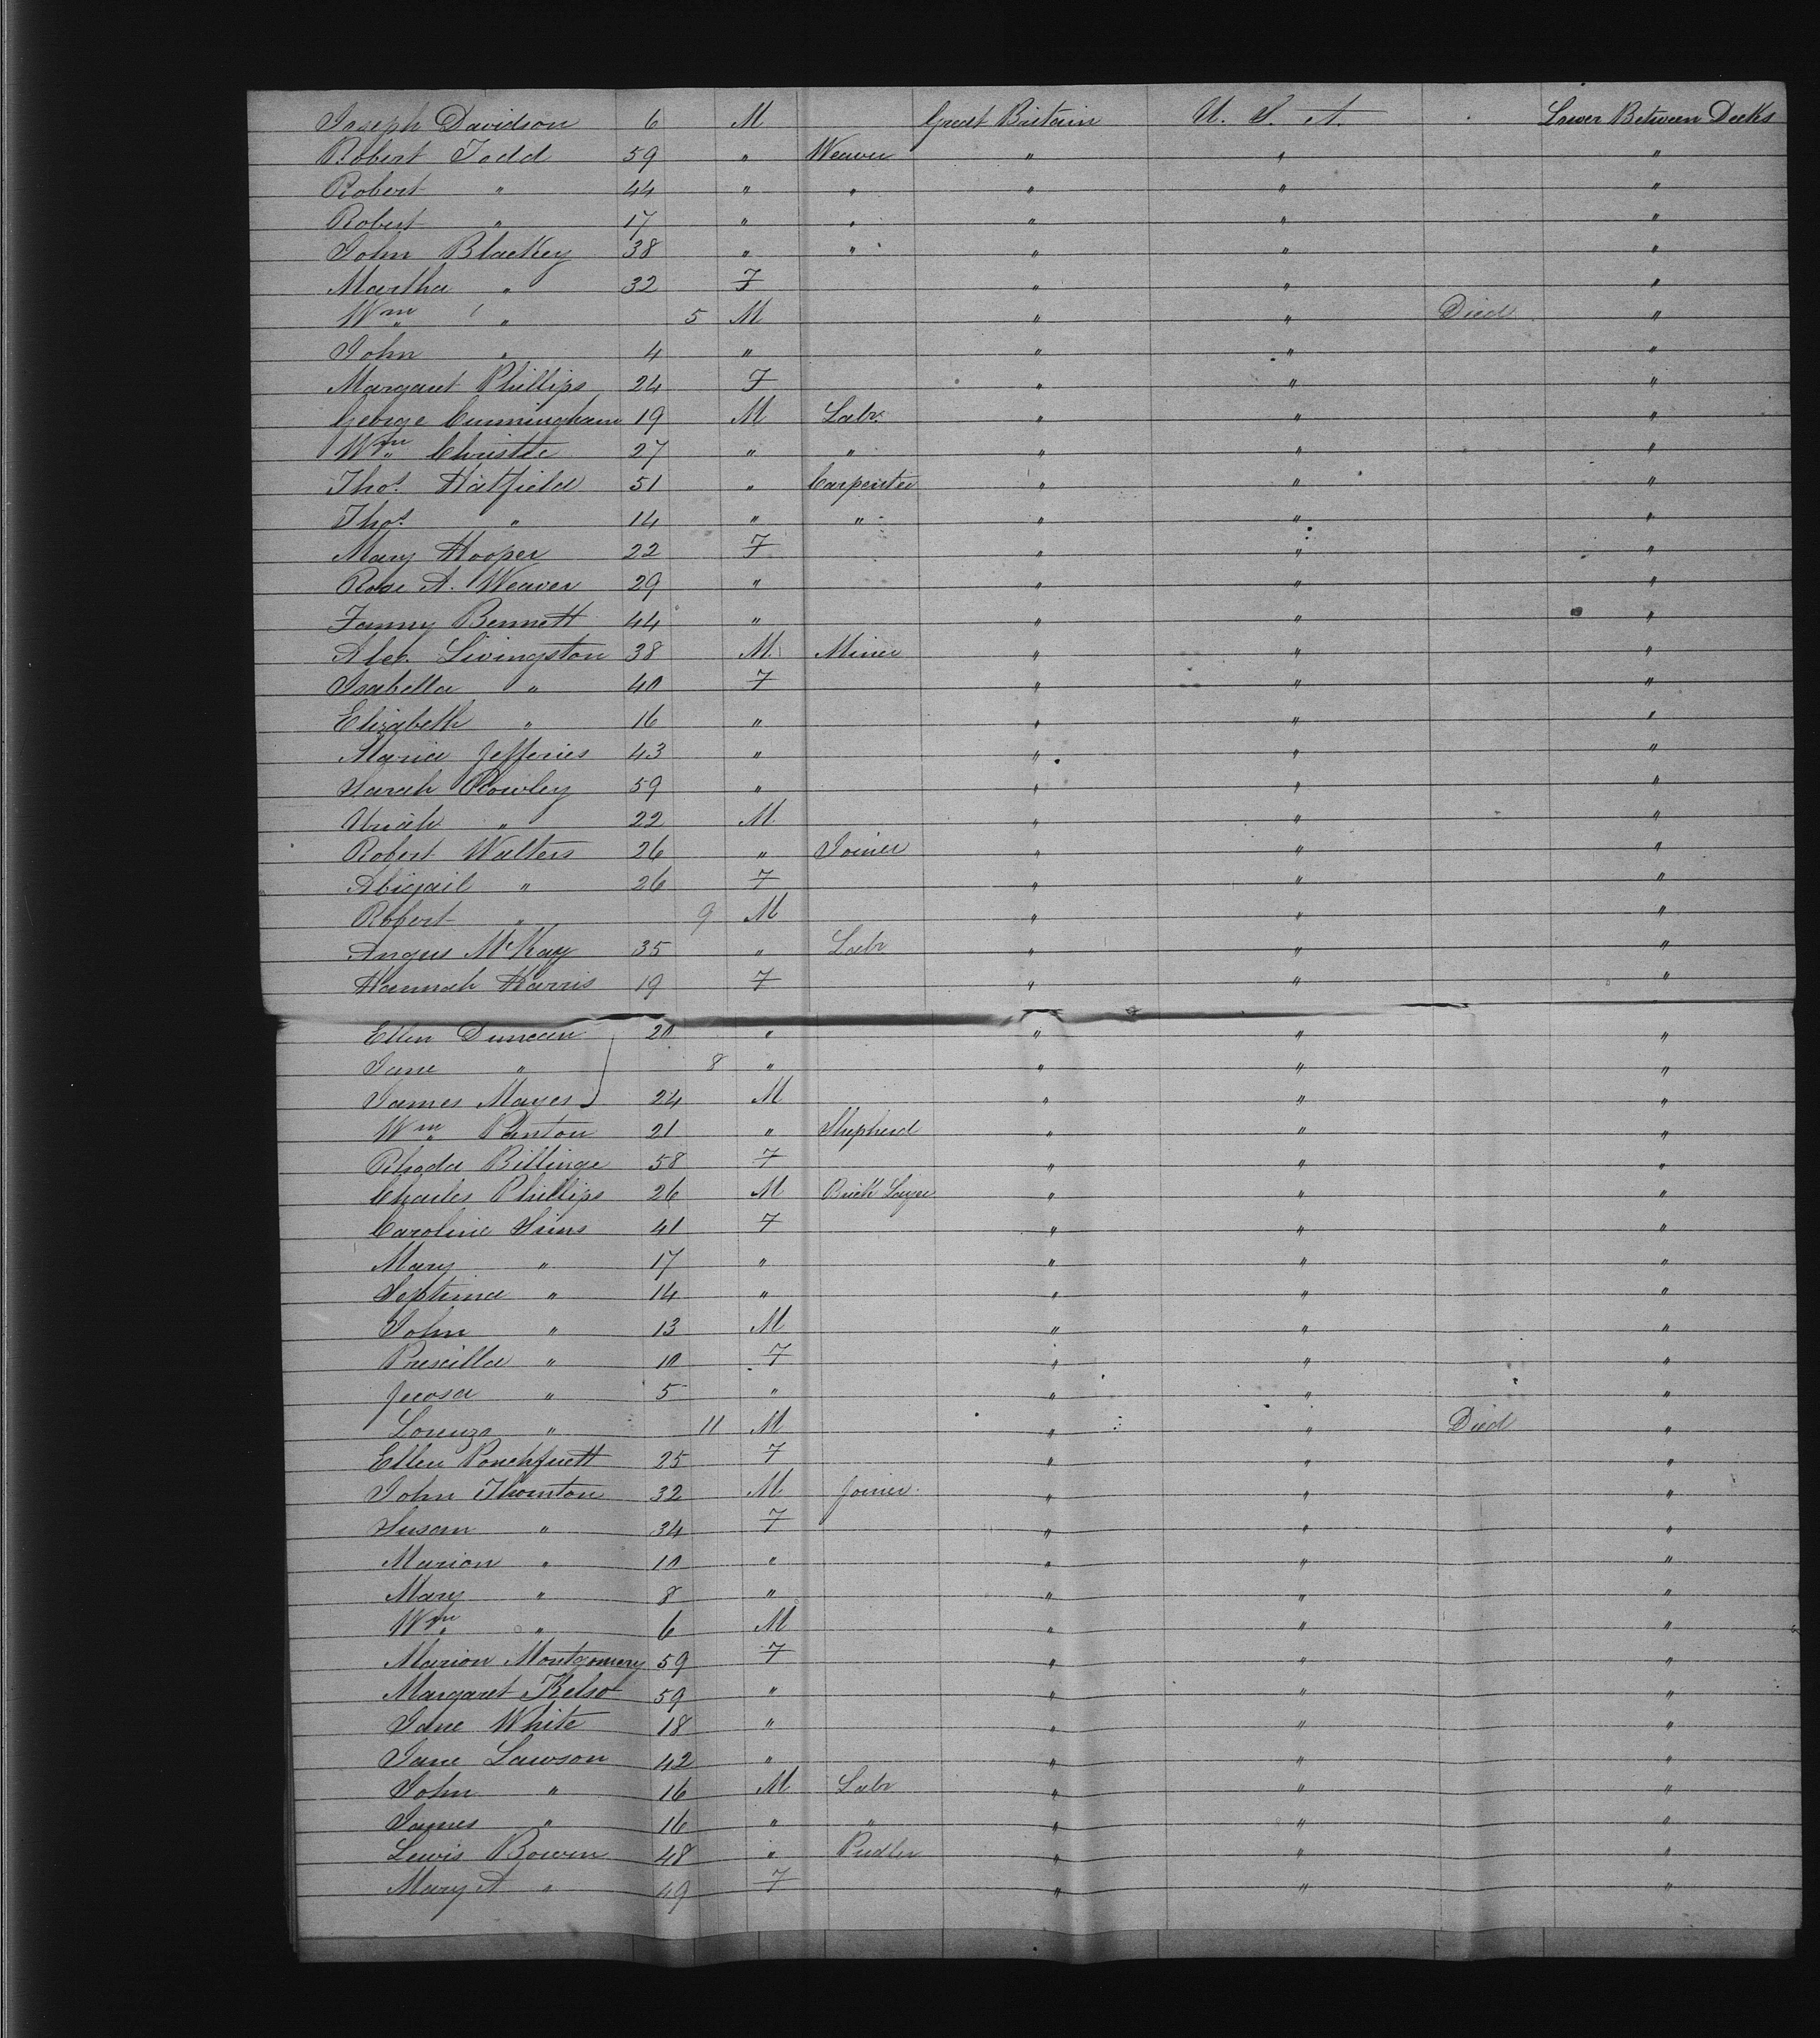 Joseph Davidson 6 M Great Britain U. S. A. Lower Between Decks
Robert Todd 59 " Weaver " " "
Robert " 44 " " " " "
Robert " 17 " " " " "
John Blackey 38 " " " " "
Martha " 32 F " " "
Wm " 5 M " " Died "
John " 4 " " " "
Margaret Phillips 24 F " " "
George Cunningham 19 M Labr. " " "
Wm Christie 27 " " " " "
Thos. Hatfield 51 " Carpenter " " "
Thos. " 14 " " " " "
Mary Hooper 22 F " " "
Rose A. Weaver 29 " " " "
Fanny Bennett 44 " " " "
Alex. Livingston 38 M Miner " " "
Isabella " 40 F " " "
Elizabeth " 16 " " " "
Maria Jefferies 43 " " " "
Sarah Rowley 59 " " " "
Uriah " 22 M " " "
Robert Walters 26 " Joiner " " "
Abigail " 26 F " " "
Robert " 9 M " " "
Angus McKay 35 " Labr " " "
Hannah Harris 19 F " " "
Ellen Duncan 20 " " " "
Jane " 8 " " " "
James Mayes 24 M " " "
Wm Panton 21 " Shepherd " " "
Rhoda Billinge 58 F " " "
Charles Phillips 26 M Brick Layer " " "
Caroline Sims 41 F " " "
Mary " 17 " " " "
Septima " 14 " " " "
John " 13 M " " "
Prescilla " 10 F " " "
" 5 " " " "
Lorenzo " 11 M " " Died "
Ellen 25 F " " "
John Thornton 32 M Joiner " " "
Susan " 34 F " " "
Marion " 10 " " " "
Mary " 8 " " " "
Wm " 6 M " " "
Marion Montgomery 59 F " " "
Margaret Kelso 59 " " " "
Jane White 18 " " " "
Jane Lawson 42 " " " "
John " 16 M Labr " " "
James " 16 " " " " "
Lewis Bowen 48 " Pudler " " "
Mary A " 49 F " " "